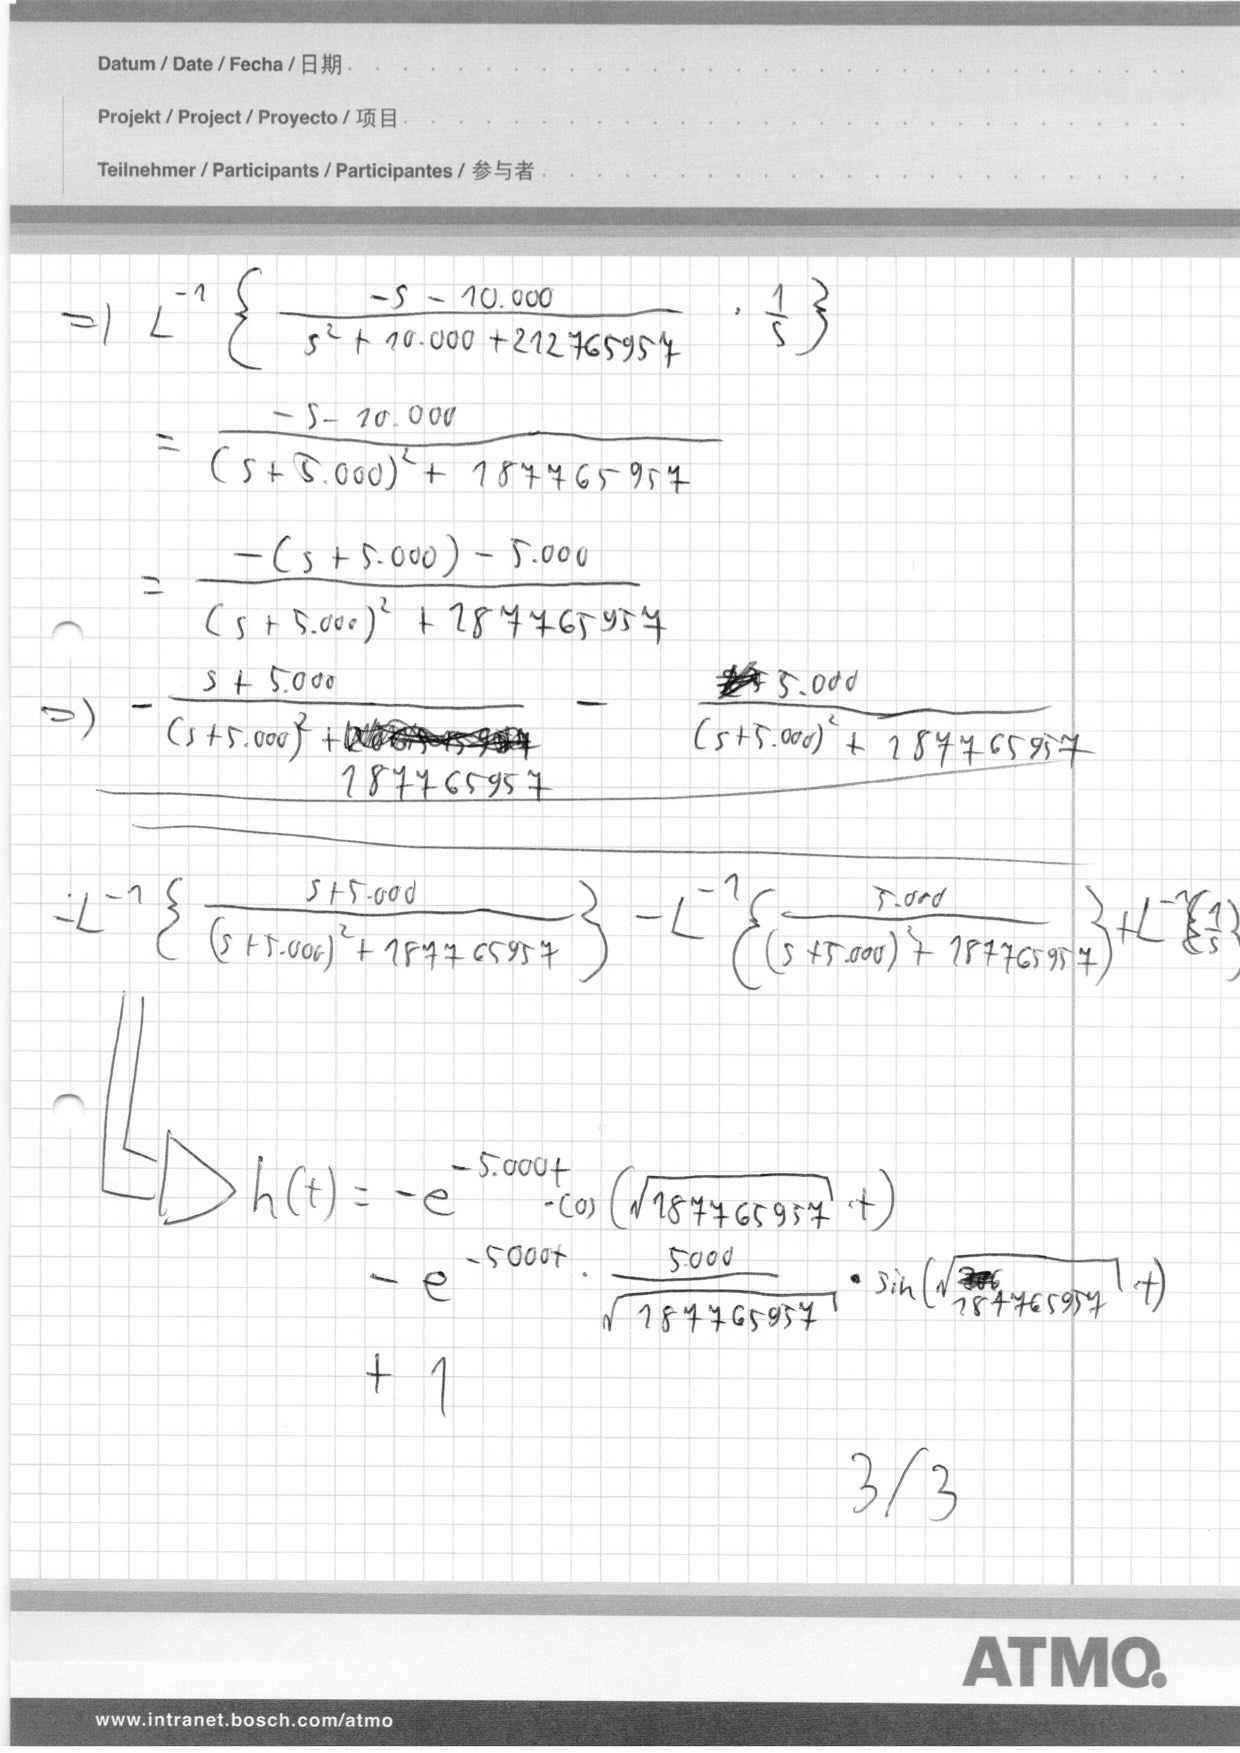 Datum / Date / Fecha / 日期
Projekt / Project / Proyecto / 项目
Teilnehmer / Participants / Participantes / 参与者
=) L^-1 { (-s - 10.000) / (s² + 10.000 + 212765957) · 1/s }
= (-s - 10.000) / ((s + 5.000)² + 187765957)
= (-(s + 5.000) - 5.000) / ((s + 5.000)² + 187765957)
=) - (s + 5.000) / ((s + 5.000)² + 187765957) - 5.000 / ((s + 5.000)² + 187765957)
-L^-1 { (s + 5.000) / ((s + 5.000)² + 187765957) } - L^-1 { 5.000 / ((s + 5.000)² + 187765957) } + L^-1 { 1/s }
h(t) = -e^-5.000t · cos (√187765957 · t)
- e^-5000t · 5000 / √187765957 · sin (√187765957 t)
+ 1
3/3
ATMO.
www.intranet.bosch.com/atmo